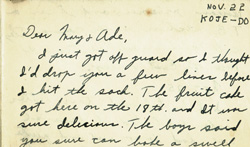 NOV. 22
KOJE-DO
Dear Mary & Ade,
I just got off guard so I thought
I'd drop you a few lines before
I hit the sack. The fruit cake
got here on the 18th. and It was
sure delicious. The boys said
you sure can bake a swell